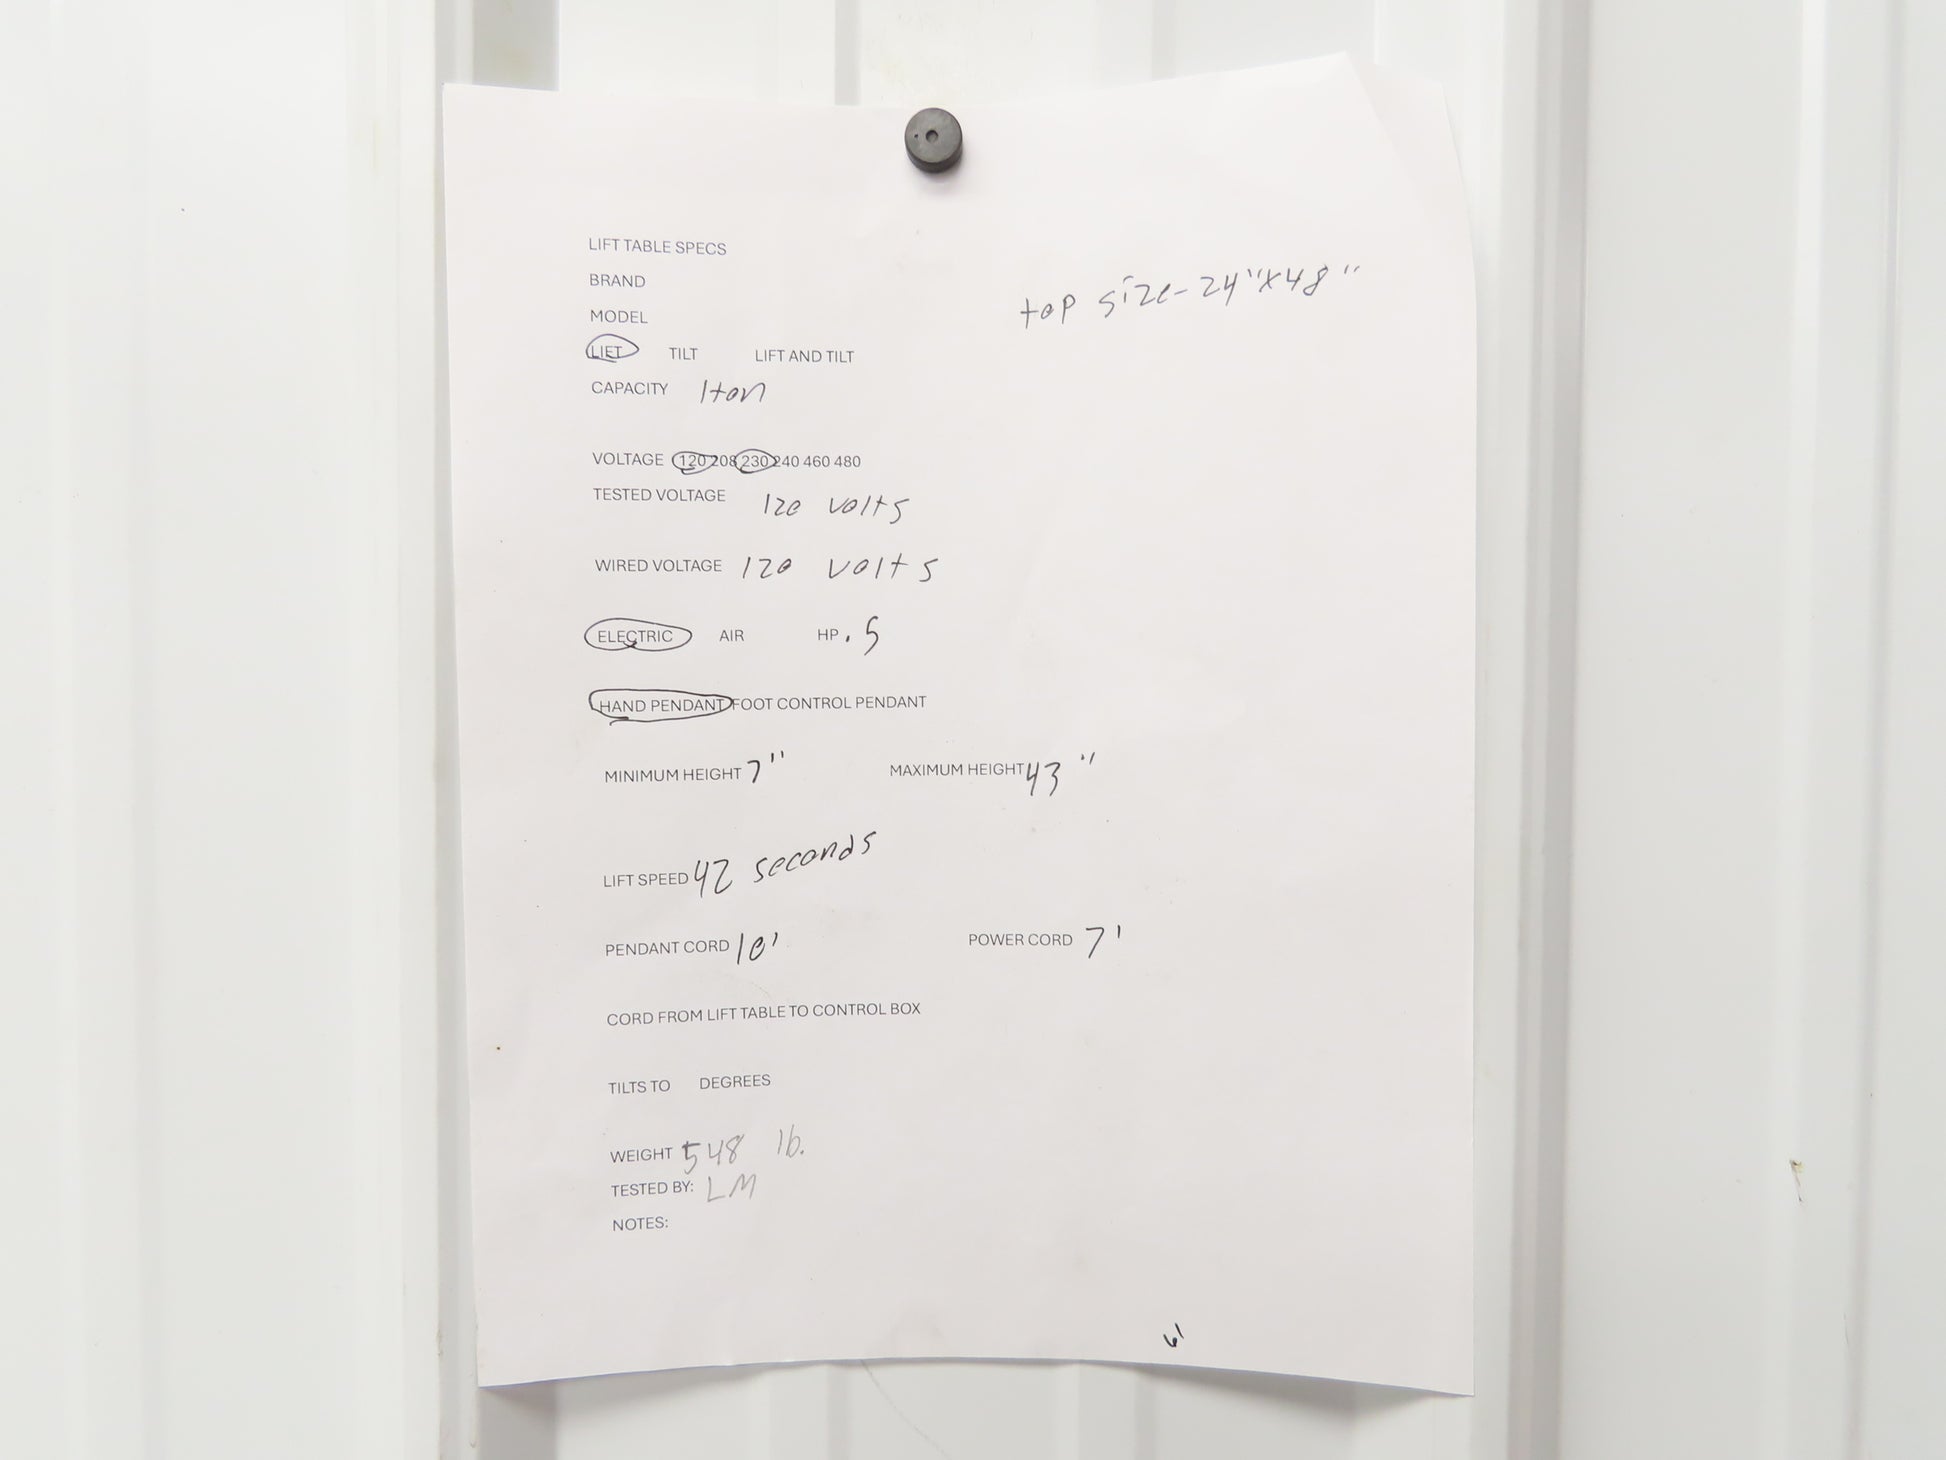 LIFT TABLE SPECS
BRAND
top size-24"x48"
MODEL
LIFT TILT LIFT AND TILT
CAPACITY 1ton
VOLTAGE 120 208 230 240 460 480
TESTED VOLTAGE 120 volts
WIRED VOLTAGE 120 volts
ELECTRIC AIR HP .5
HAND PENDANT FOOT CONTROL PENDANT
MINIMUM HEIGHT 7" MAXIMUM HEIGHT 43"
LIFT SPEED 42 seconds
PENDANT CORD 10' POWER CORD 7'
CORD FROM LIFT TABLE TO CONTROL BOX
TILTS TO DEGREES
WEIGHT 548 lb.
TESTED BY: LM
NOTES: